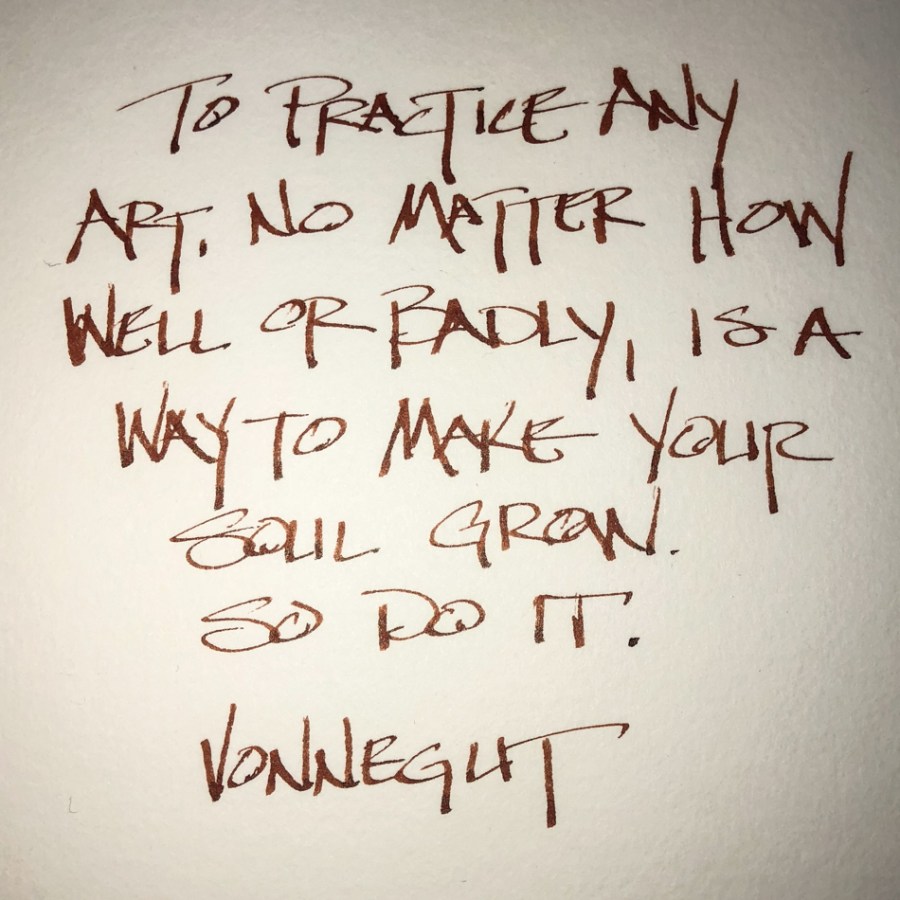 TO PRACTICE ANY
ART, NO MATTER HOW
WELL OR BADLY, IS A
WAY TO MAKE YOUR
SOUL GROW.
SO DO IT.
VONNEGUT